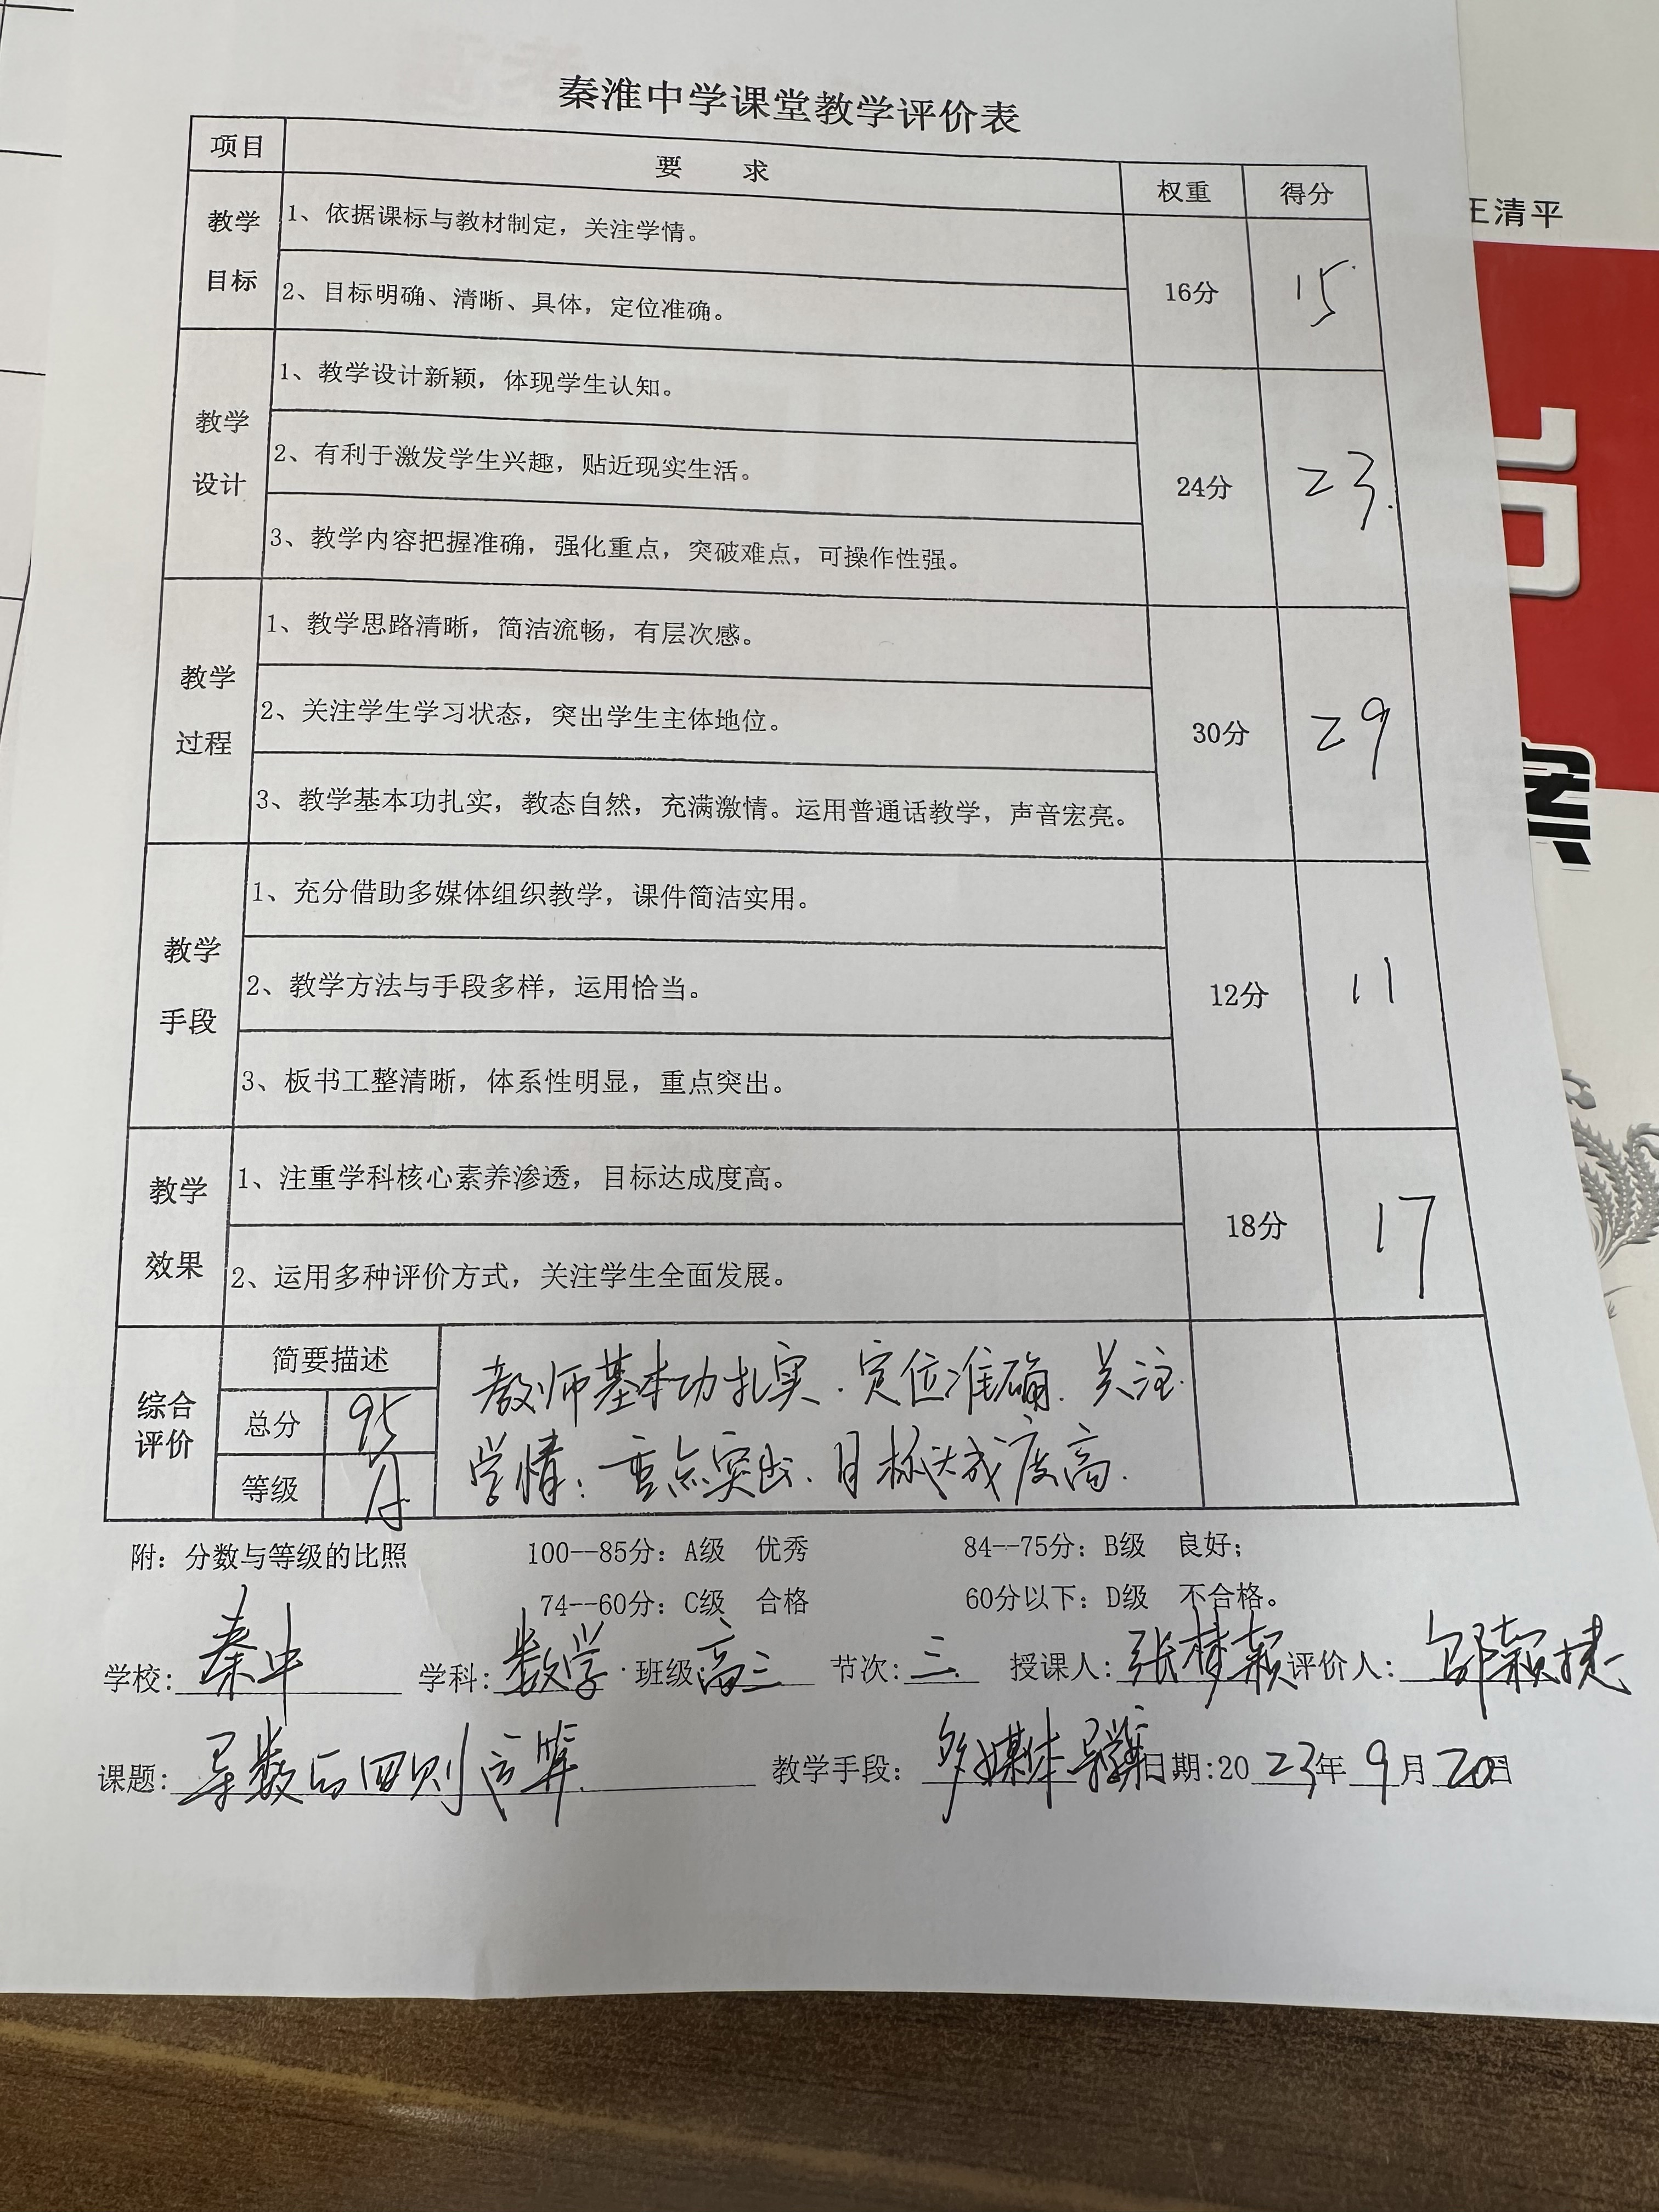 秦淮中学课堂教学评价表
项目 要 求 权重 得分
教学目标 1、依据课标与教材制定，关注学情。 16分 15
2、目标明确、清晰、具体，定位准确。
教学设计 1、教学设计新颖，体现学生认知。 24分 23.
2、有利于激发学生兴趣，贴近现实生活。
3、教学内容把握准确，强化重点，突破难点，可操作性强。
教学过程 1、教学思路清晰，简洁流畅，有层次感。 30分 29
2、关注学生学习状态，突出学生主体地位。
3、教学基本功扎实，教态自然，充满激情。运用普通话教学，声音宏亮。
教学手段 1、充分借助多媒体组织教学，课件简洁实用。 12分 11
2、教学方法与手段多样，运用恰当。
3、板书工整清晰，体系性明显，重点突出。
教学效果 1、注重学科核心素养渗透，目标达成度高。 18分 17
2、运用多种评价方式，关注学生全面发展。
综合评价 简要描述 教师基本功扎实.定位准确.关注
总分 95 学情；重点突出.目标达成度高.
等级 A
附：分数与等级的比照 100--85分：A级 优秀 84--75分：B级 良好；
74--60分：C级 合格 60分以下：D级 不合格。
学校：秦中 学科：数学 班级高三 节次：三 授课人：张梦颖 评价人：邰颖捷
课题：导数的四则运算 教学手段：多媒体 导学案 日期：2023年9月20日
王清平
案